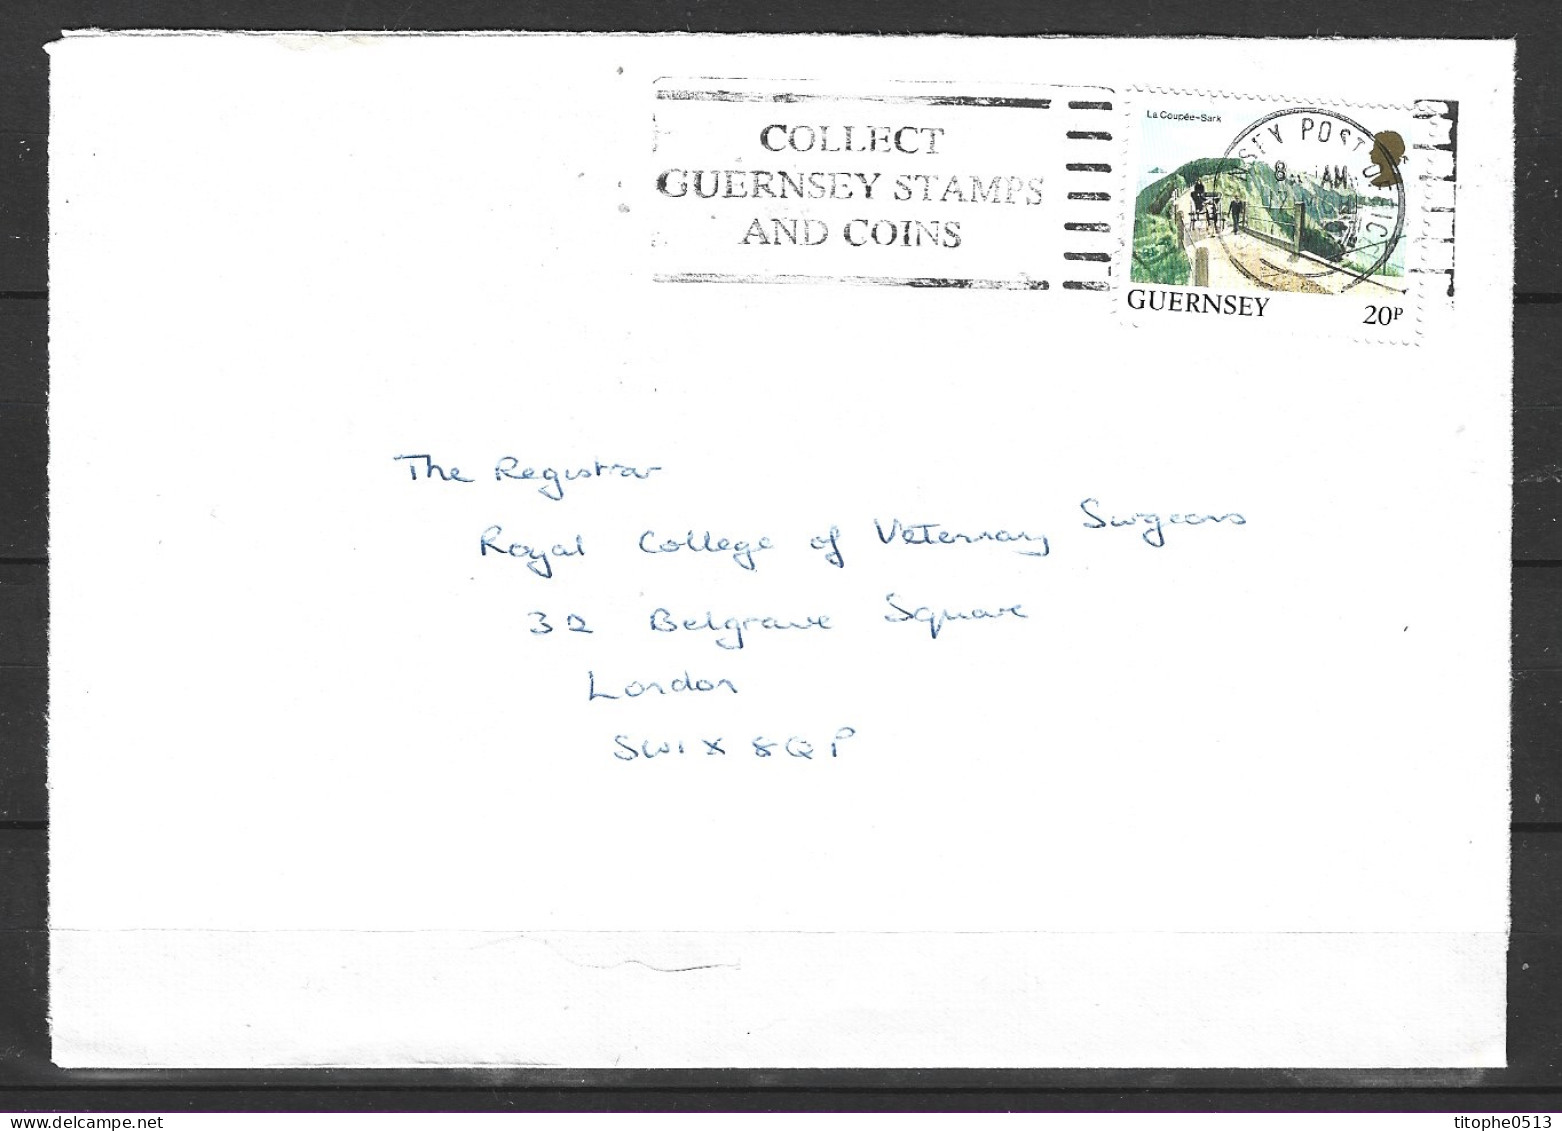 COLLECT
GUERNSEY STAMPS
AND COINS
La Coupée-Sark
POST OFFICE
8 AM
12
GUERNSEY 20P
The Registrar
Royal College of Veternary Surgeons
32 Belgrave Square
London
SW1X 8QP
titophe0513